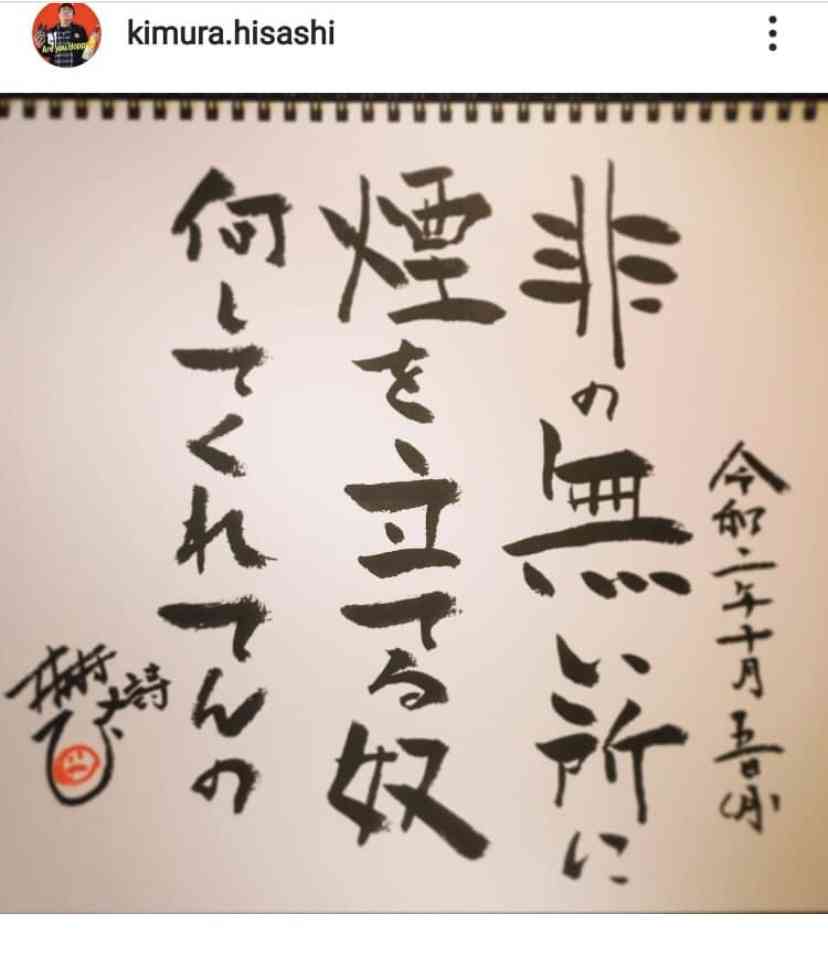 kimura.hisashi
Are you Happy
令和二年十月五日(月)
非の無い所に
煙を立てる奴
何してくれてんの
詩